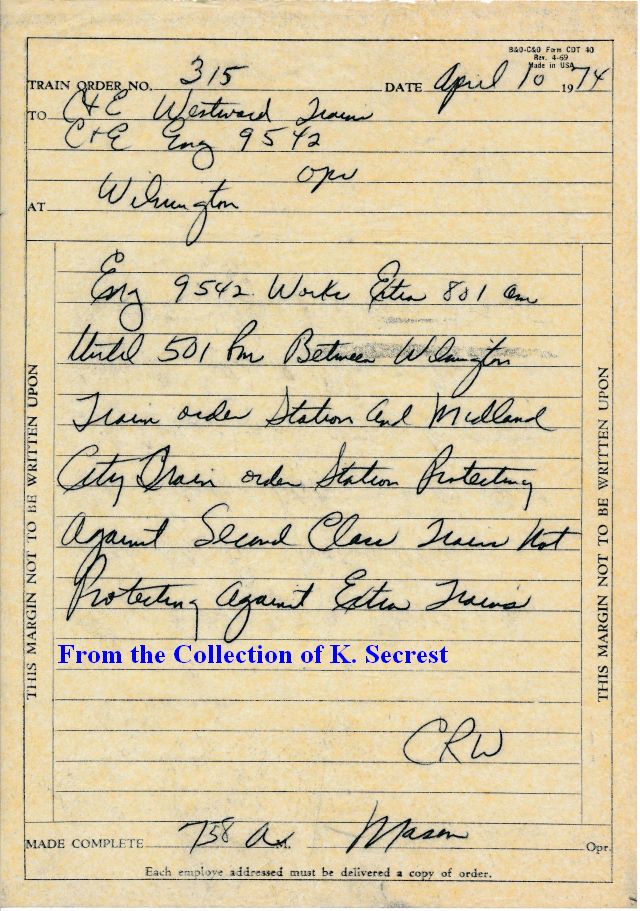 B&O-C&O Form CDT 40
Rev. 4-69
Made in USA
TRAIN ORDER NO. 315 DATE April 10 1974
TO C+E Westward Trains
C+E Eng 9542
Opr
AT Wilmington
Eng 9542 Works Extra 801 am
Until 501 Pm Between Wilmington
Train order Station and Midland
City Train order Station Protecting
Against Second Class Trains Not
Protecting Against Extra Trains
From the Collection of K. Secrest
CRW
MADE COMPLETE 758 A M. Mason Opr.
Each employe addressed must be delivered a copy of order.
THIS MARGIN NOT TO BE WRITTEN UPON
THIS MARGIN NOT TO BE WRITTEN UPON